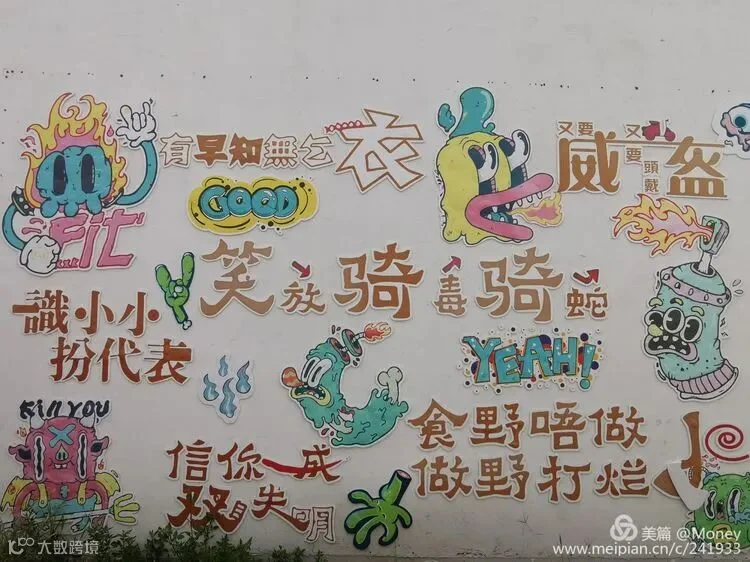 有早知無乞衣
又要威又要頭戴盔
GOOD
FiT
笑放骑毒骑蛇
識小小
扮代表
YEAH!
KiLL YOU
食野唔做
做野打烂
信你一成
双目失明
大数跨境
美篇 @Money
www.meipian.cn/c/241933